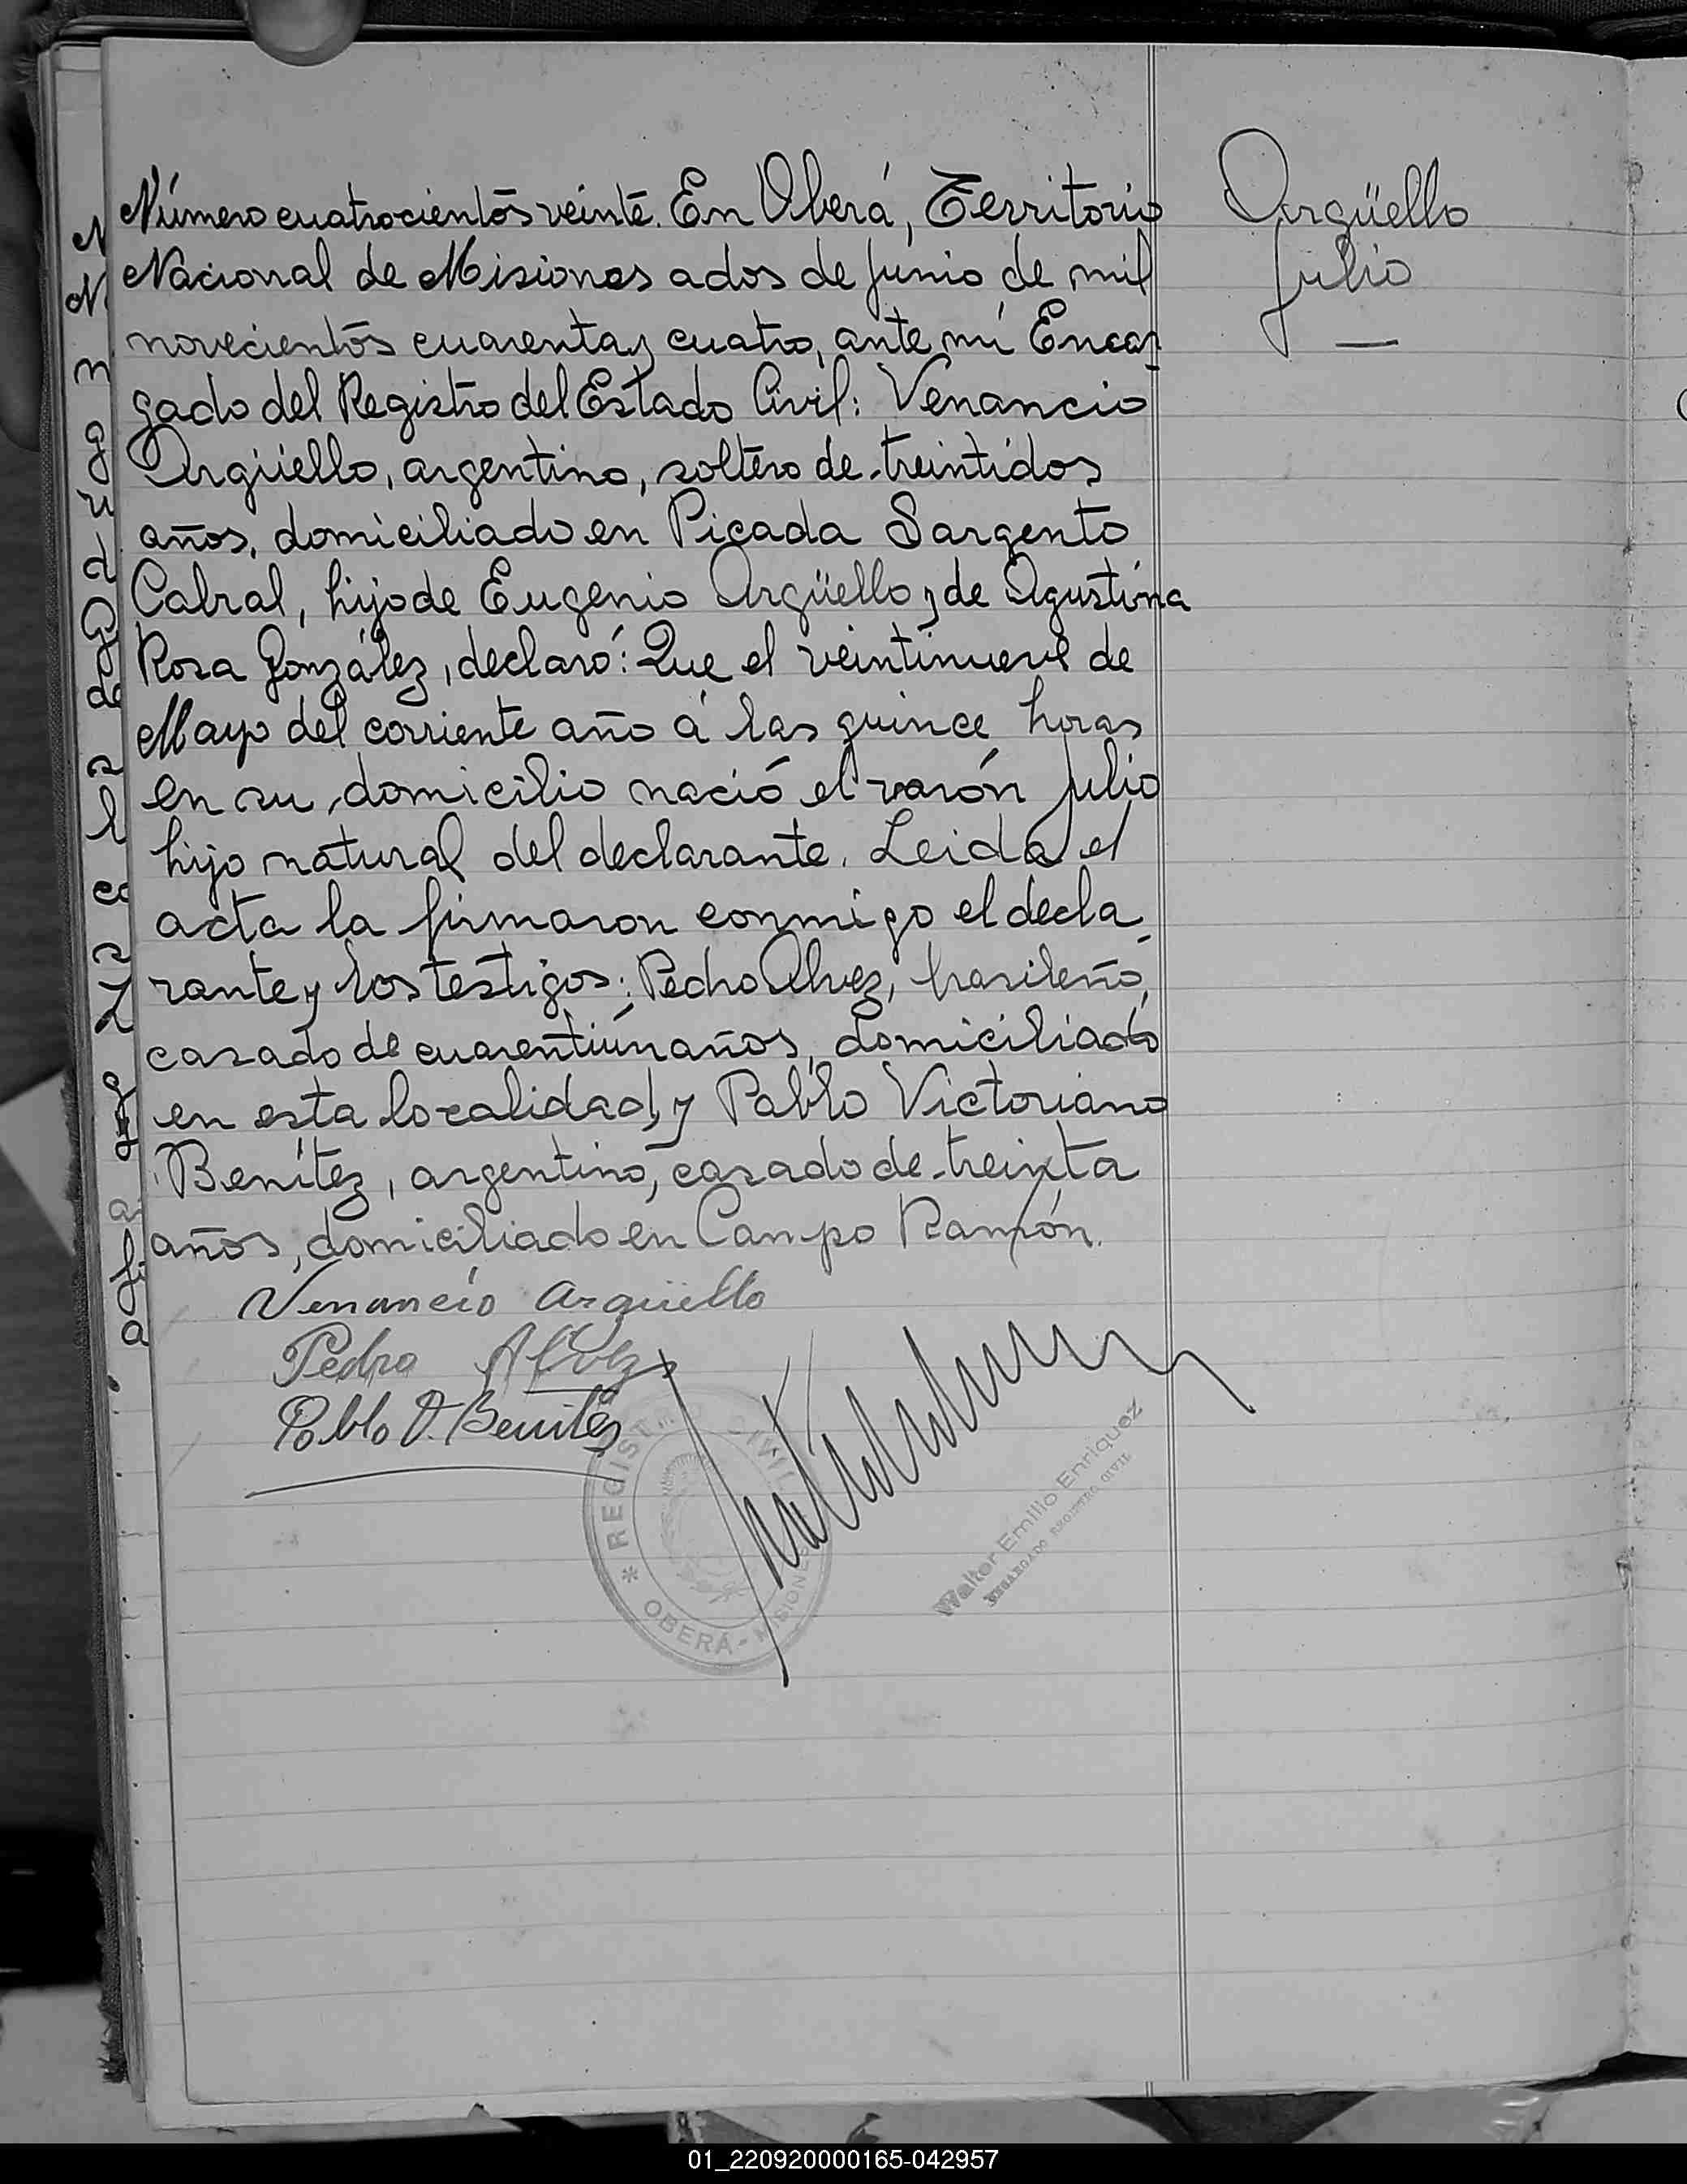 Número cuatrocientos veinte. En Oberá, Territorio
Nacional de Misiones a dos de Junio de mil
novecientos cuarenta y cuatro, ante mí Encar-
gado del Registro del Estado Civil: Venancio
Argüello, argentino, soltero de treintidos
años, domiciliado en Picada Sargento
Cabral, hijo de Eugenio Argüello y de Agustina
Rosa González, declaró: Que el veintinueve de
Mayo del corriente año á las quince horas
en su domicilio nació el varón Julio
hijo natural del declarante. Leida el
acta la firmaron conmigo el decla-
rante y los testigos: Pedro Alvez, brasileño,
casado de cuarentiún años, domiciliado
en esta localidad, y Pablo Victoriano
Benítez, argentino, casado de treinta
años, domiciliado en Campo Ramón.
Venancio Argüello
Pedro Alvez
Pablo V. Benitez
Argüello
Julio
* REGISTRO CIVIL
OBERÁ - MISIONES
Walter Emilio Enriquez
ENCARGADO REGISTRO CIVIL
01_220920000165-042957